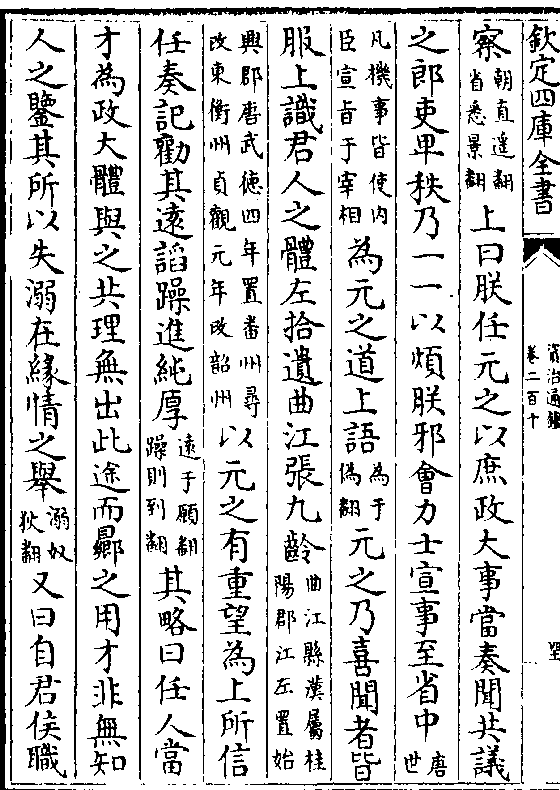 欽定四庫全書
資治通鑑
卷二百十
察朝直遥翻省悉景翻上曰朕任元之以庶政大事當奏聞共議
之郎吏卑秩乃一一以煩朕邪會力士宣事至省中唐世
凡機事皆使内臣宣旨于宰相為元之道上語為于偽翻元之乃喜聞者皆
服上識君人之體左拾遺曲江張九齡曲江縣漢屬桂陽郡江左置始
興郡唐武德四年置番州尋改東衡州貞觀元年改韶州以元之有重望為上所信
任奏記勸其遠諂躁進純厚遠于願翻躁則到翻其略曰任人當
才為政大體與之共理無出此途而曏之用才非無知
人之鑒其所以失溺在緣情之舉溺奴狄翻又曰自君侯職